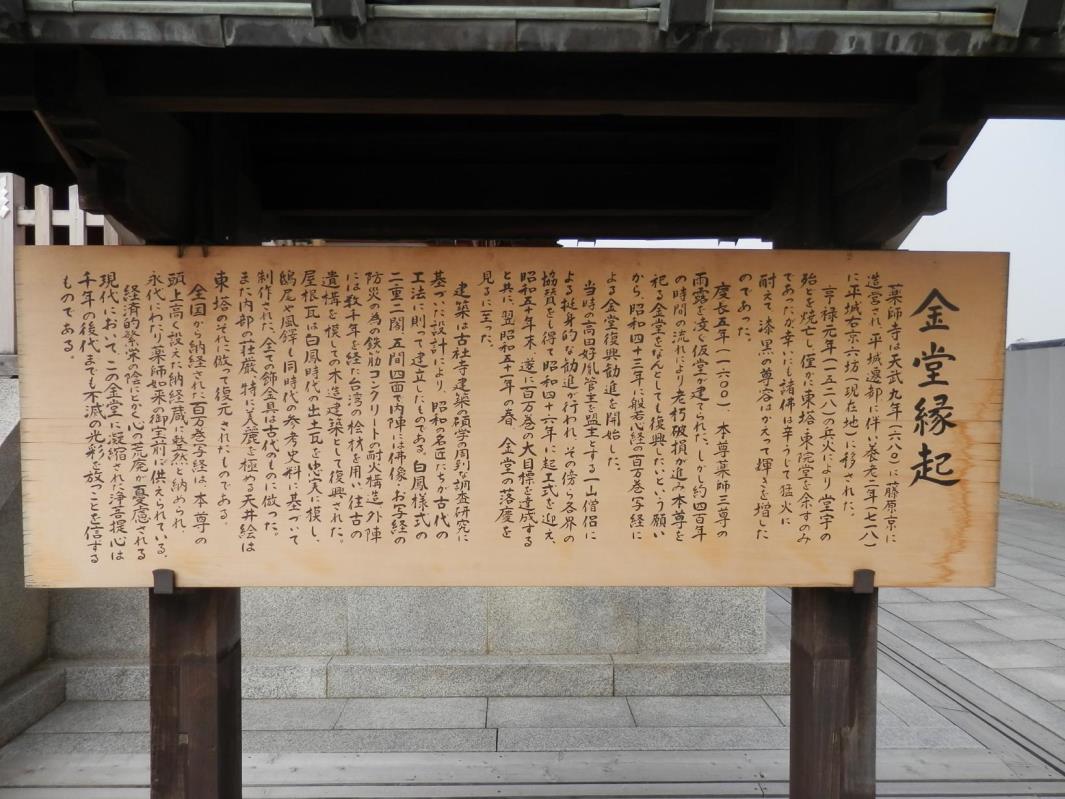 金堂縁起
薬師寺は天武九年(六八〇)に藤原京に
造営され、平城遷都に伴い養老二年(七一八)
に平城右京六坊(現在地)に移された。
享禄元年(一五二八)の兵火により堂宇の
殆とを焼亡し僅かに東塔・東院堂を余すのみ
であったが幸いにも諸佛は辛うじて猛火に
耐えて、漆黒の尊容はかえって輝きを増した
のであった。
慶長五年(一六〇〇)、本尊薬師三尊の
雨露を凌ぐ仮堂が建てられた。しかし約四百年
の時間の流れにより老朽破損が進み本尊を
祀る金堂をなんとしても復興したいという願い
から、昭和四十三年に般若心経の百万巻写経に
よる金堂復興勧進を開始した。
当時の高田好胤管主を盟主とする一山僧侶に
よる挺身的な勧進が行われ、その傍ら各界の
協賛をも得て昭和四十六年に起工式を迎え、
昭和五十年末、遂に百万巻の大目標を達成する
と共に、翌昭和五十一年の春、金堂の落慶を
見るに至った。
建築は古社寺建築の碩学の周到な調査研究に
基づいた設計により、昭和の名匠たちが古代の
工法に則って建立したものである。白鳳様式の
二重二閣、五間四面で内陣には佛像・お写経の
防災の為の鉄筋コンクリートの耐火構造、外陣
には数千年を経た台湾の桧材を用い、往古の
遺構を模しての木造建築として復興された。
屋根瓦は白鳳時代の出土瓦を忠実に模し、
鴟尾や風鐸も同時代の参考史料に基づいて
制作された。全ての飾金具は古代のものに倣った。
また内部の荘厳、特に美麗を極める天井絵は
東塔のそれに倣って復元されたものである。
全国から納経された百万巻写経は、本尊の
頭上高く設えた納経蔵に整然と納められ、
永代にわたり薬師如来の御宝前に供えられている。
経済的繁栄の陰にとかく心の荒廃が憂慮される
現代において、この金堂に凝縮された浄菩提心は
千年の後代までも不滅の光彩を放つことを信ずる
ものである。